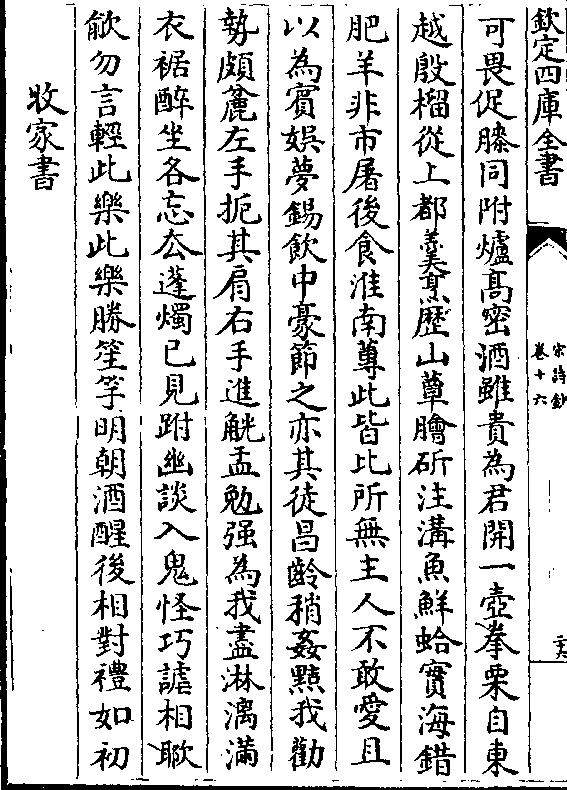 欽定四庫全書
宋詩鈔
卷十六
可畏促膝同附爐高密酒雖貴為君開一壺拳栗自東
越殷榴從上都羹烹歴山蕈膾斫注溝魚鮮蛤實海錯
肥羊非市屠後食淮南蓴此皆比所無主人不敢愛且
以為賓娯夢錫飲中豪節之亦其徒昌齡稍姦黠我勸
勢頗麄左手扼其肩右手進觥盂勉强為我盡淋漓滿
衣裾醉坐各忘厺蓬燭已見跗幽談入鬼怪巧謔相歌
歈勿言輕此樂此樂勝笙竽明朝酒醒後相對禮如初
收家書